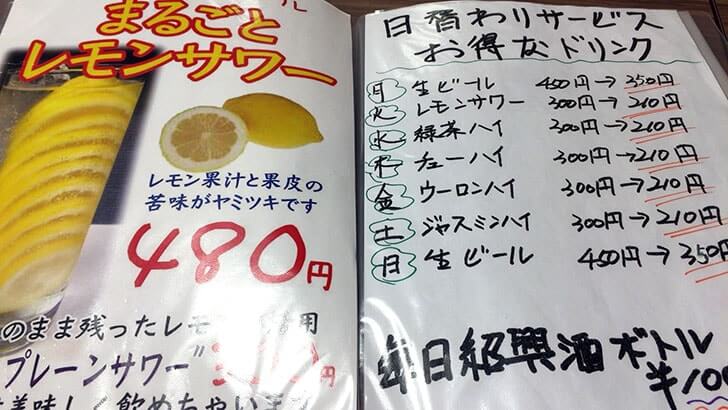 まるごと
レモンサワー
レモン果汁と果皮の
苦味がヤミツキです
480円
のまま残ったレモ
用
プレーンサワー"
円
美味しく飲めちゃいま
日替わりサービス
お得なドリンク
月 生ビール 450円→350円
火 レモンサワー 300円→210円
水 緑茶ハイ 300円→210円
木 チューハイ 300円→210円
金 ウーロンハイ 300円→210円
土 ジャスミンハイ 300円→210円
日 生ビール 450円→350円
毎日紹興酒ボトル
¥100